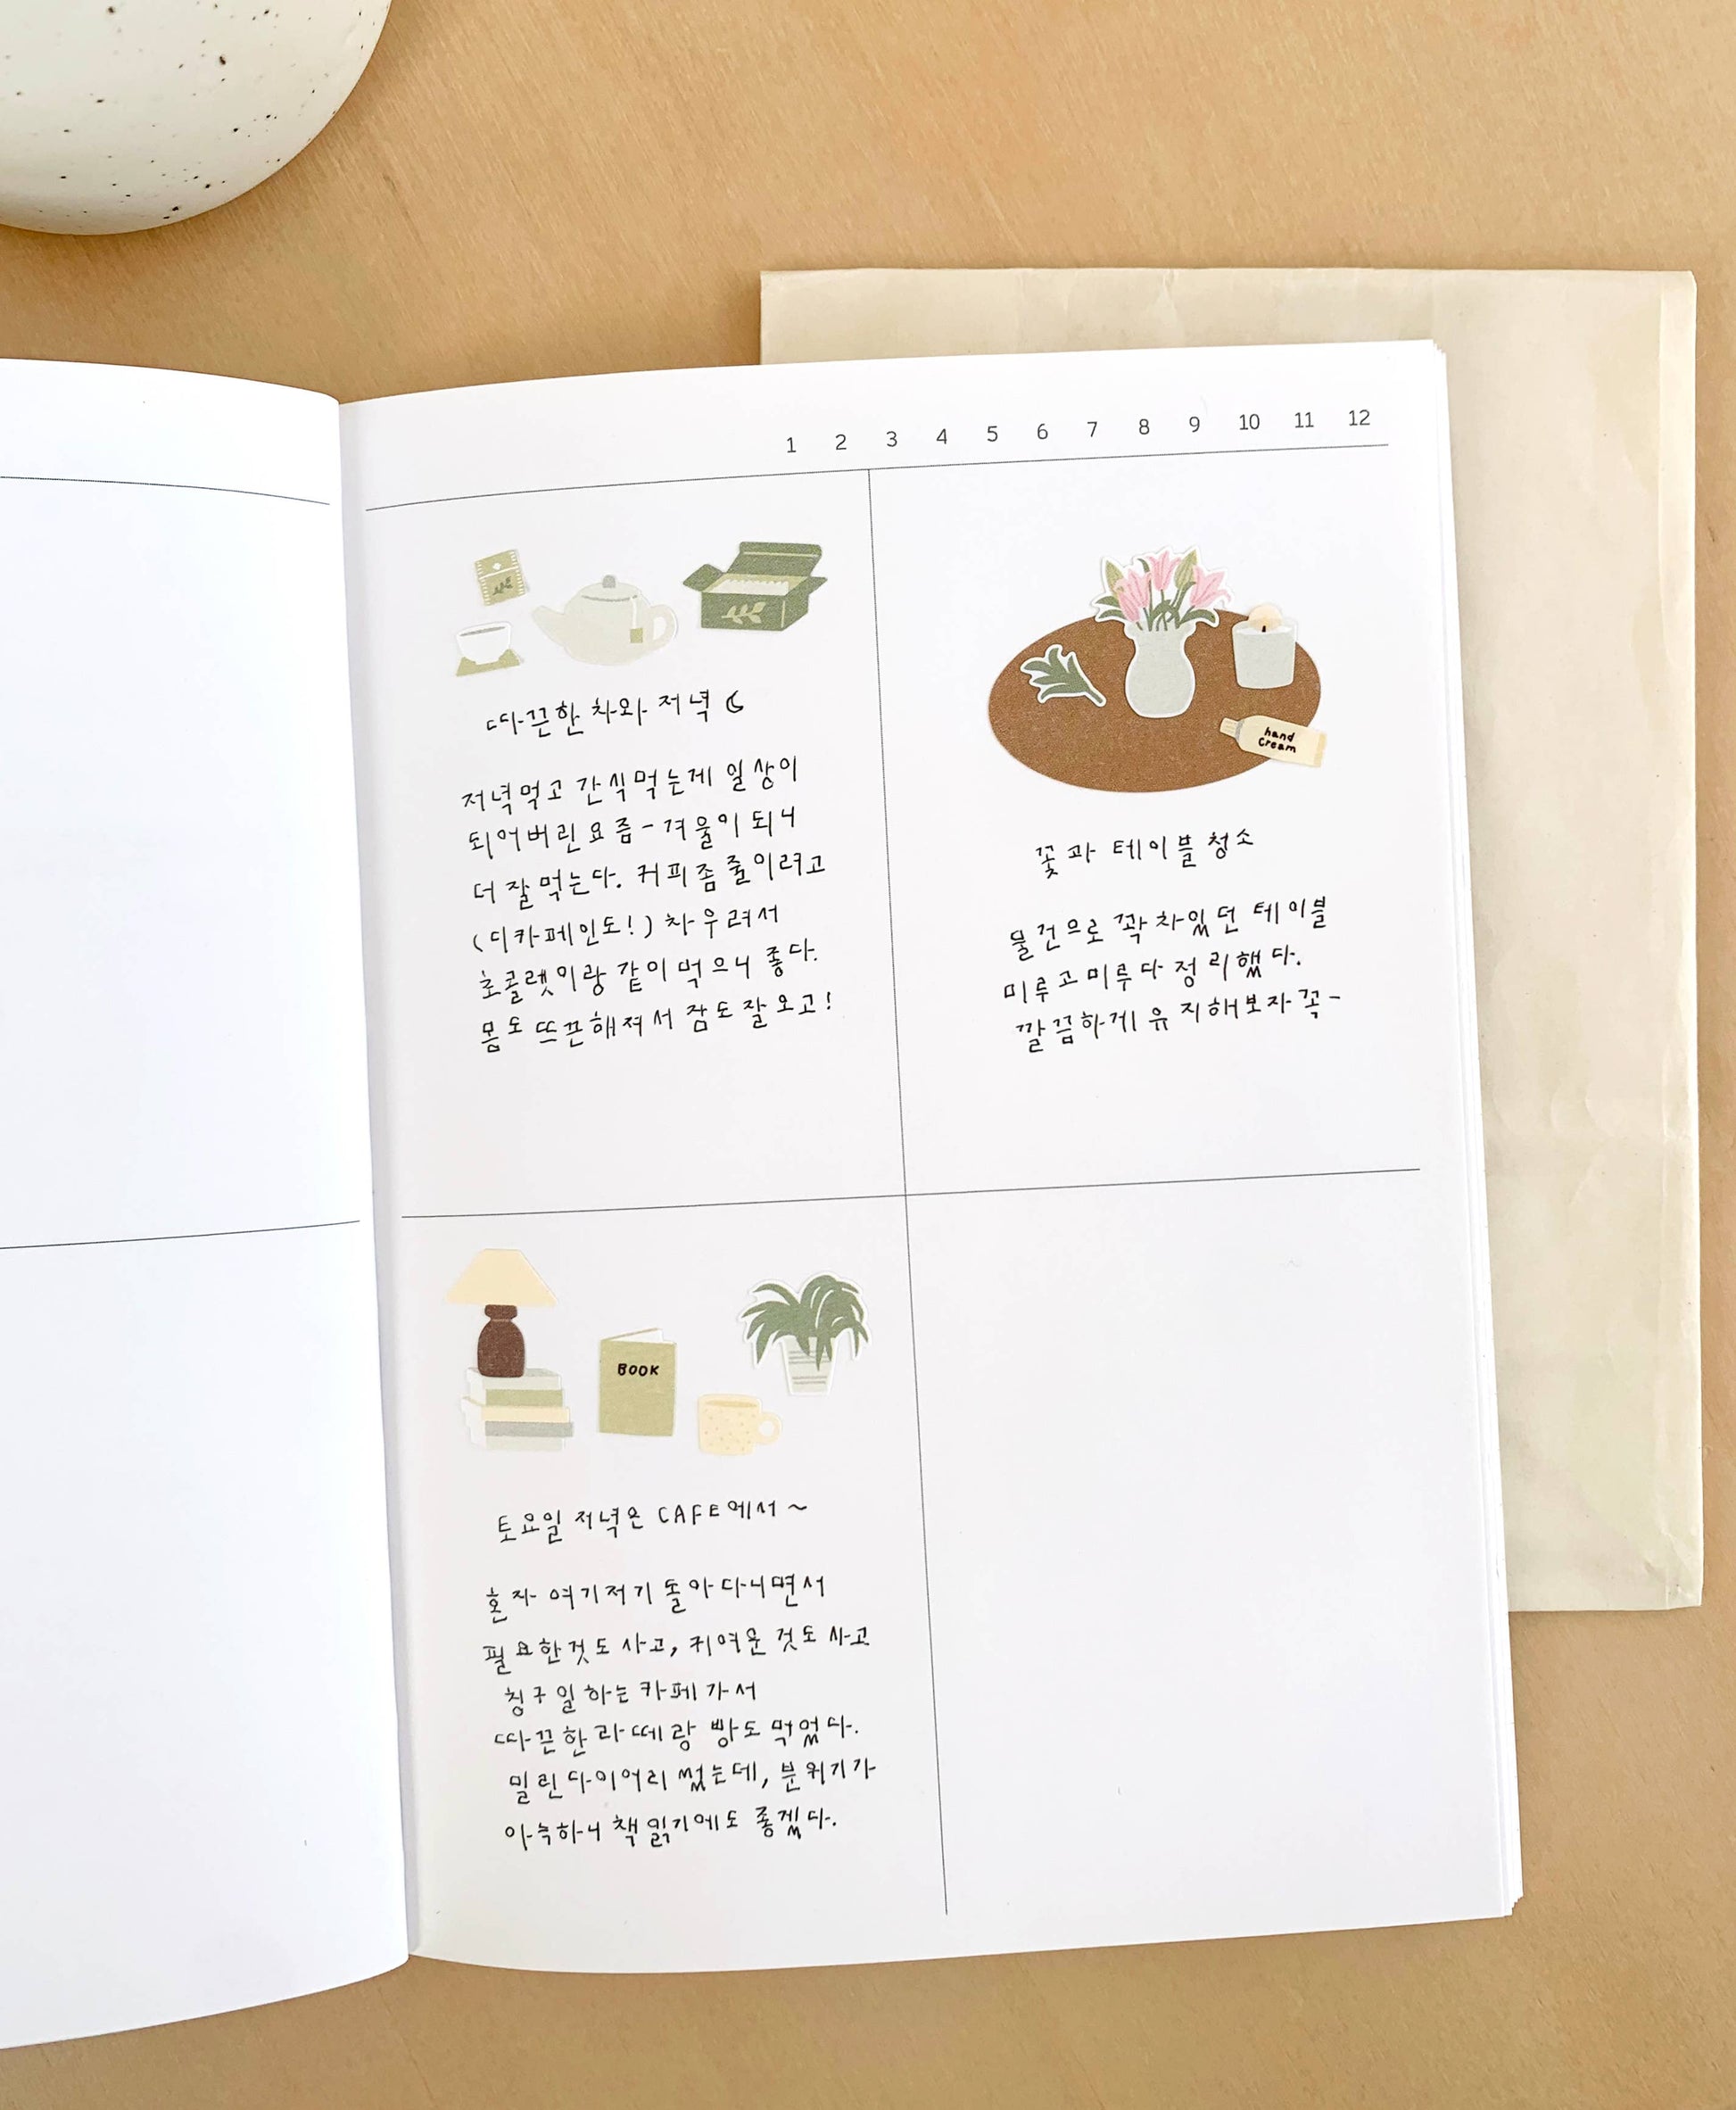 1 2 3 4 5 6 7 8 9 10 11 12
따끈한 차와 저녁
저녁먹고 간식먹는게 일상이
되어버린요즘- 겨울이 되니
더 잘먹는다. 커피좀 줄이려고
(디카페인도!) 차우려서
초콜렛이랑 같이 먹으니 좋다.
몸도 뜨끈해져서 잠도잘오고!
hand
cream
꽃과 테이블청소
물건으로 꽉차있던 테이블
미루고미루다 정리했다.
깔끔하게 유지해보자 꼭-
BOOK
토요일 저녁은 CAFE에서~
혼자 여기저기 돌아다니면서
필요한것도 사고, 귀여운 것도 사고
칭구일하는 카페가서
따끈한 라떼랑 빵도 먹었다.
밀린다이어리 썼는데, 분위기가
아늑하니 책읽기에도 좋겠다.